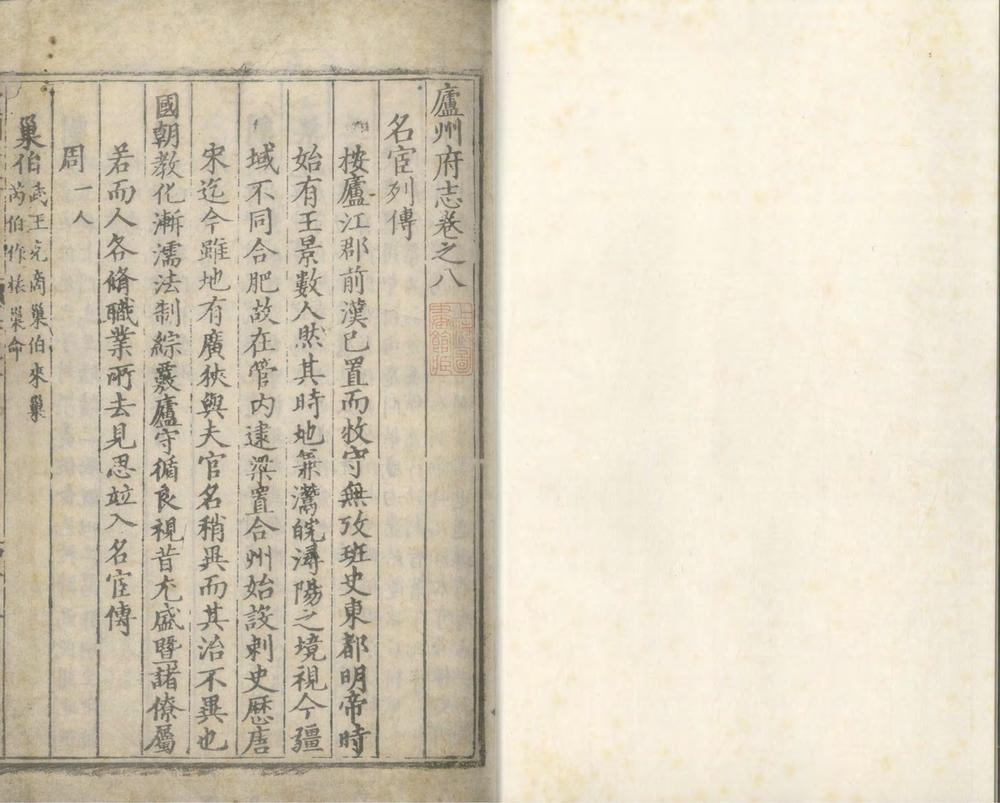 廬州府志卷之八
名宦列傳
按廬江郡前漢已置而牧守無攷班史東都明帝時
始有王景數人然其時地兼灊皖潯陽之境視今疆
域不同合肥故在管内逮梁置合州始設刺史歷唐
宋迄今雖地有廣狹與夫官名稍異而其治不異也
國朝教化漸濡法制綜覈廬守循良視昔尤盛暨諸僚屬
若而人各脩職業所去見思竝入名宦傳
周一人
巢伯武王克商巢伯來巢
芮伯作旅巢命
上海圖書館藏